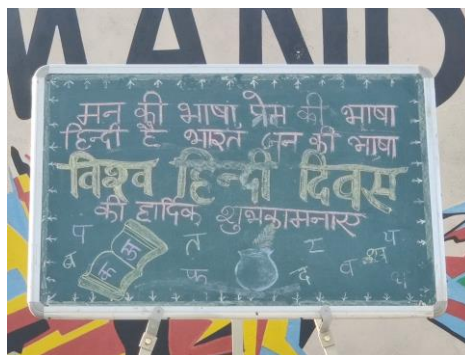 WAND
मन की भाषा, प्रेम की भाषा
हिन्दी है भारत जन की भाषा
विश्व हिन्दी दिवस
की हार्दिक शुभकामनाएं
प त ट प
ब क क फ द व क्ष थ